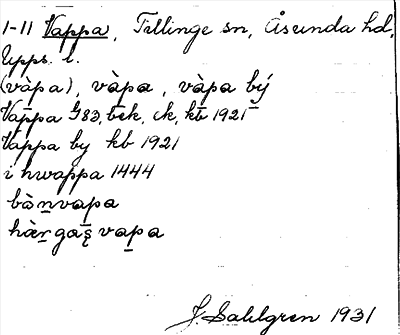 1-11 Vappa, Tillinge sn, Åsunda hd,
Upps. l.
(vàp̠a), vàp̠a, vàp̠a bý̠
Vappa G82, bek, ck, kb 1921
Vappa by kb 1921
i hwappa 1444
bòn̠vap̠a
hàr̠gas̠ vap̠a
J. Sahlgren 1931